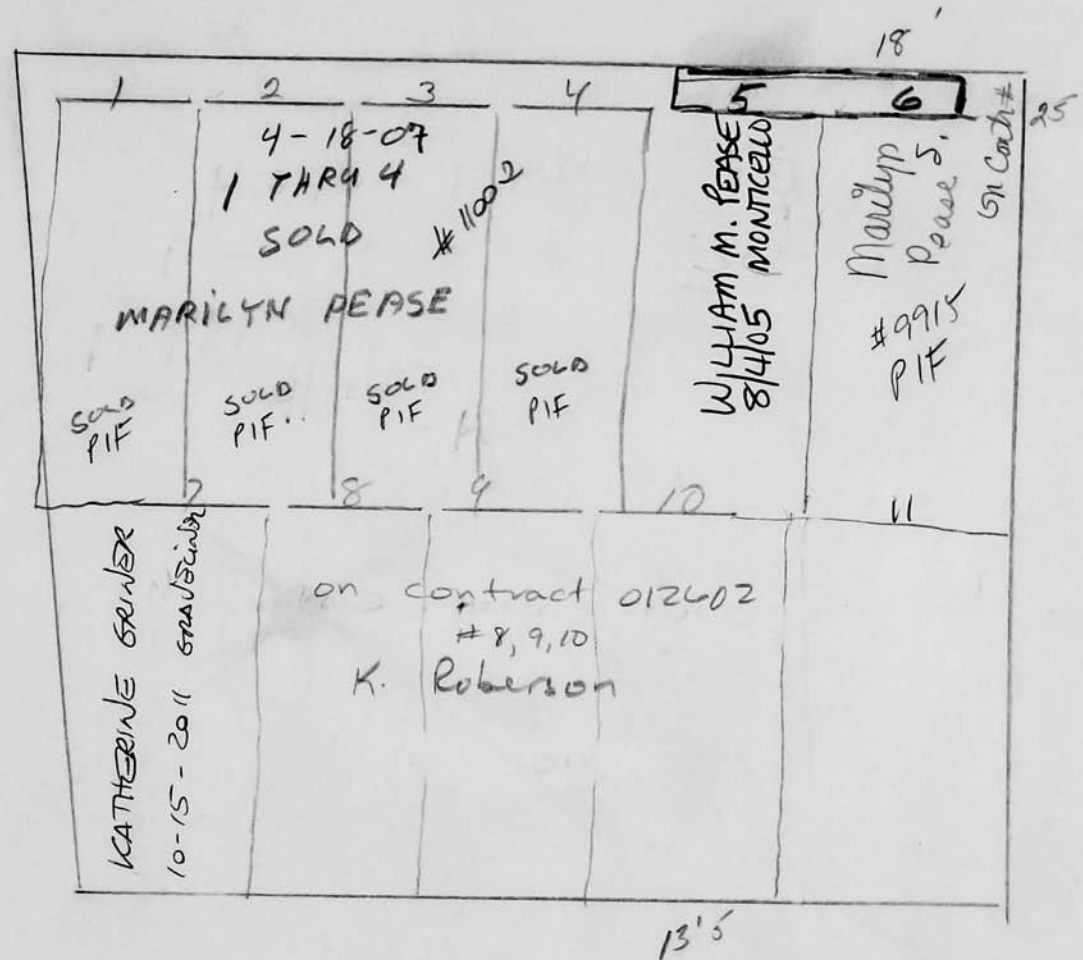 18'
1 2 3 4 5 6
25
4-18-07
1 THRU 4
SOLD
#11002
MARILYN PEASE
SOLD
PIF
SOLD
PIF..
SOLD
PIF
SOLD
PIF
WILLIAM M. PEASE
8/4/05 MONTICELLO
Marilyn
Pease S.
#9915
PIF
7 8 9 10 11
KATHERINE GRINER
10-15-2011
on contract 012602
#8, 9, 10
K. Roberson
13'5